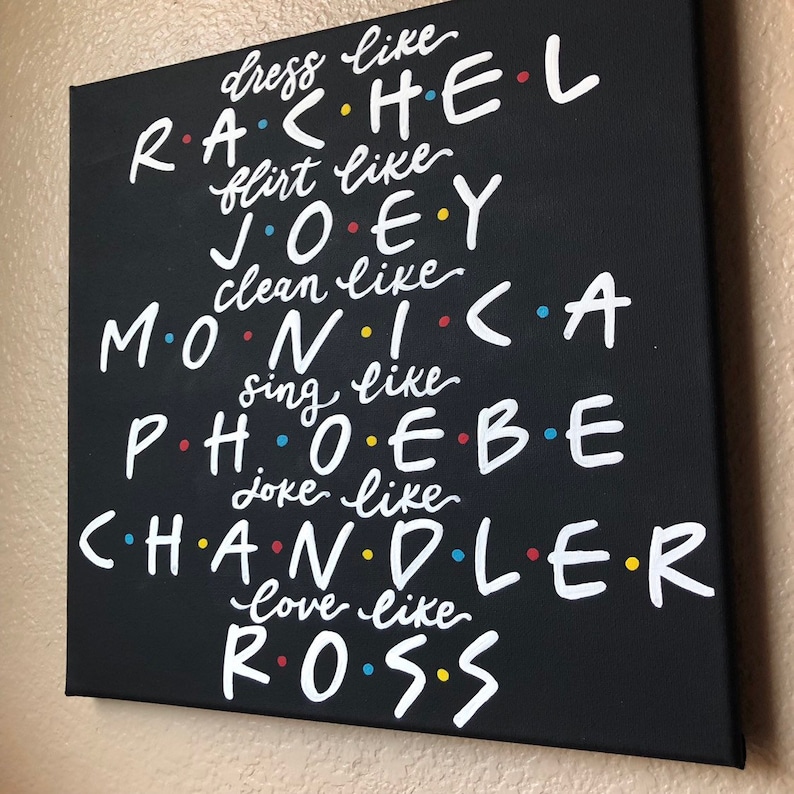 dress like
R•A•C•H•E•L
flirt like
J•O•E•Y
clean like
M•O•N•I•C•A
sing like
P•H•O•E•B•E
joke like
C•H•A•N•D•L•E•R
love like
R•O•S•S